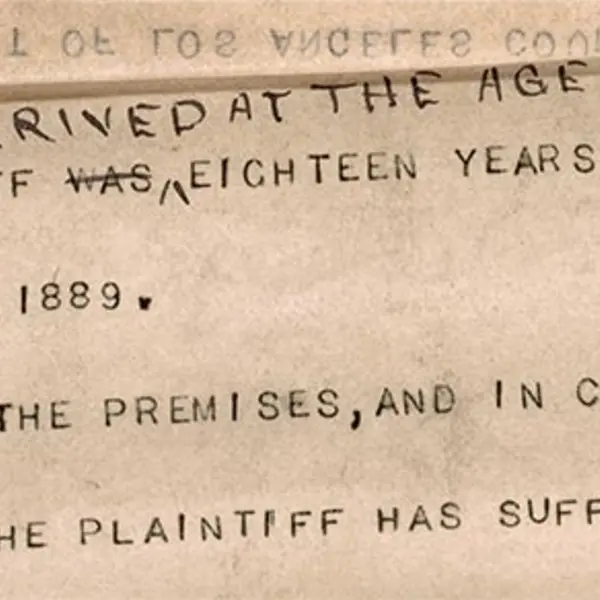 T OF LOS ANGELES COU
RIVED AT THE AGE
F WAS EIGHTEEN YEARS
1889.
THE PREMISES, AND IN C
HE PLAINTIFF HAS SUFF